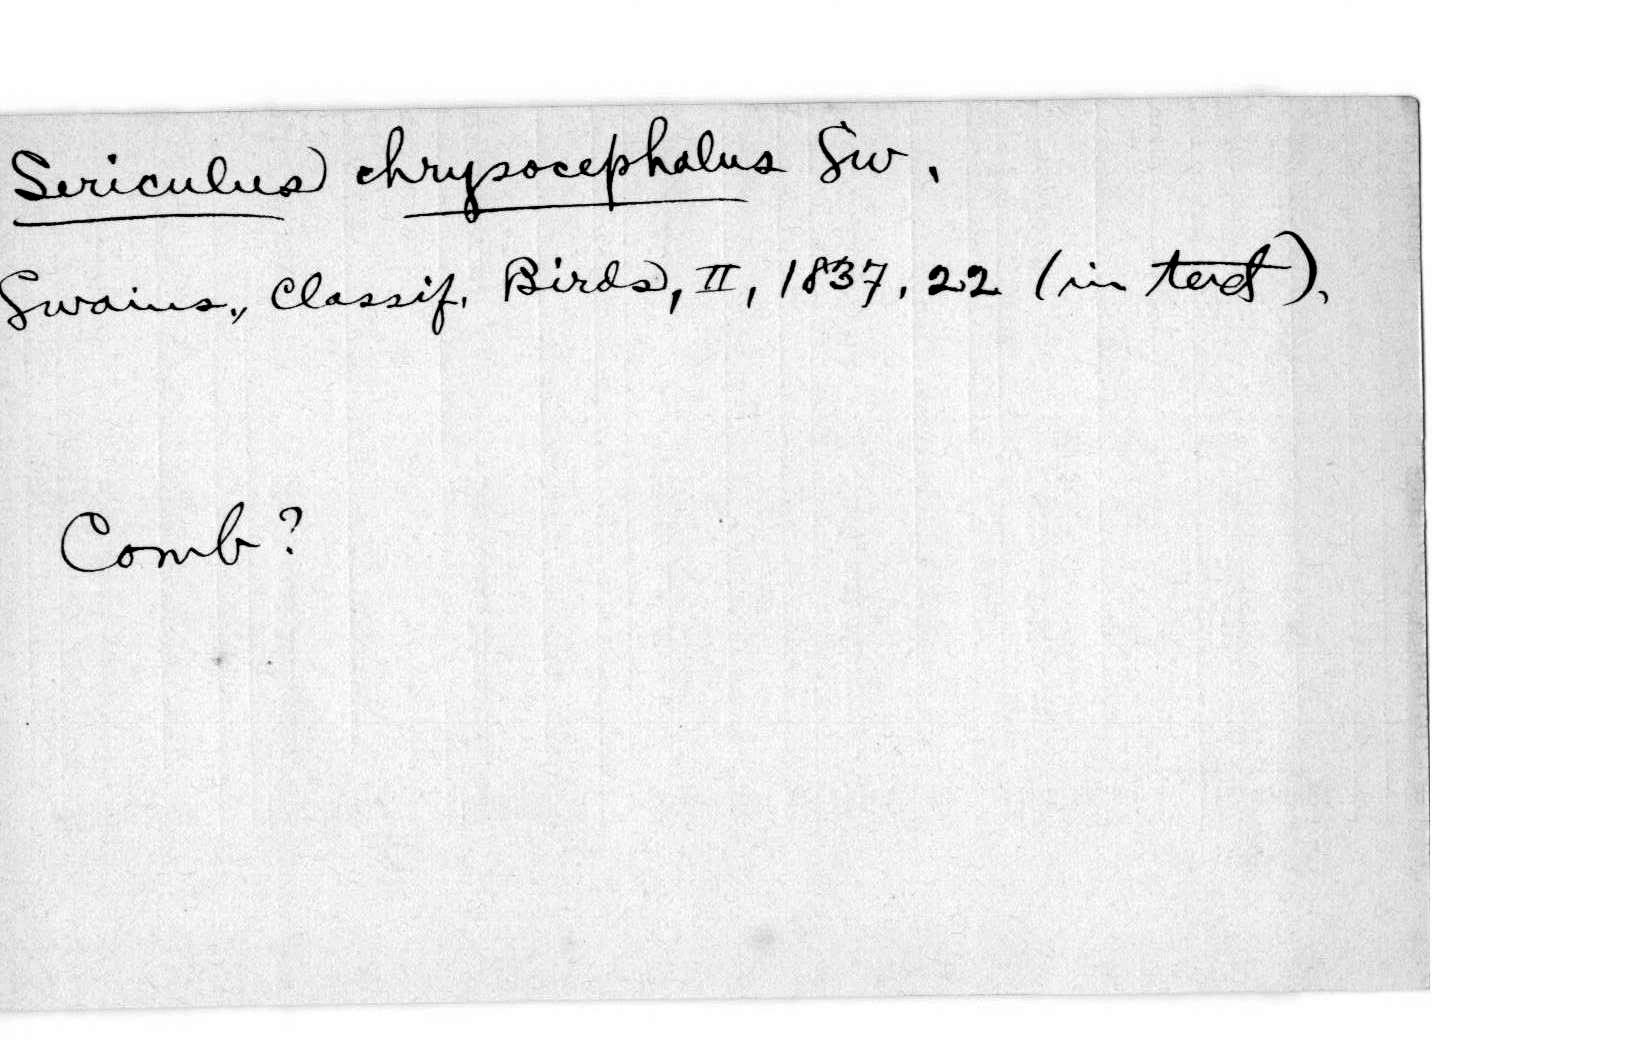 Sericulus chrysocephalus Sw.
Swains., Classif. Birds, II, 1837, 22 (in text).
Comb?